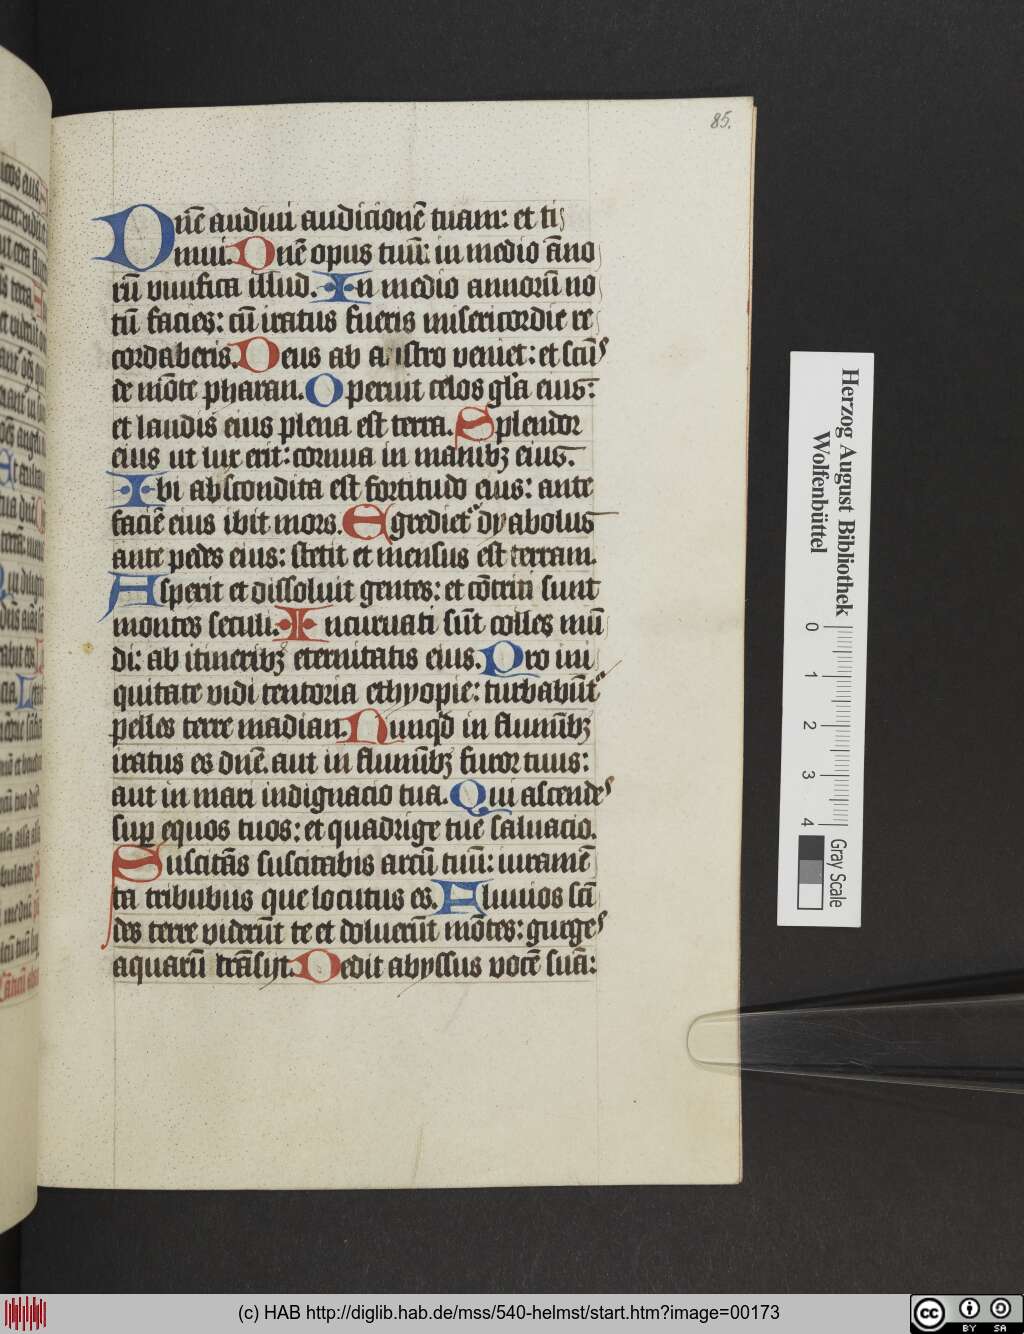 85.
Dn̄e audiui audicionē tuam: et ti
mui. Dn̄e opus tuū: in medio āno
rū viuifica illud. In medio annorū no
tū facies: cū iratus fueris misericordie re
cordaberis. Deus ab austro veniet: et scūs
de mōte pharan. Operuit celos gl̄a eius:
et laudis eius plena est terra. Splendor
eius ut lux erit: cornua in manibꝫ eius.
Ibi abscondita est fortitudo eius: ante
faciē eius ibit mors. Egrediet᷑ dyabolus
ante pedes eius: stetit et mensus est terram.
Aspexit et dissoluit gentes: et cōtriti sunt
montes seculi. Incuruati sūt colles mū
di: ab itineribꝫ eternitatis eius. Pro ini
quitate vidi tentoria ethyopie: turbabūt᷑
pelles terre madian. Nunqͥd in flumībꝫ
iratus es dn̄e. aut in flumībꝫ furor tuus:
aut in mari indignacio tua. Qui ascendes
suꝑ equos tuos: et quadrige tue saluacio.
Suscitās suscitabis arcū tuū: iuramē
ta tribubus que locutus es. Fluuios scī
des terre viderūt te et doluerūt mōtes: gurges
aquarū trāsijt. Dedit abyssus vocē suā:
Herzog August Bibliothek
Wolfenbüttel
0 1 2 3 4
Gray Scale
(c) HAB http://diglib.hab.de/mss/540-helmst/start.htm?image=00173
cc BY SA